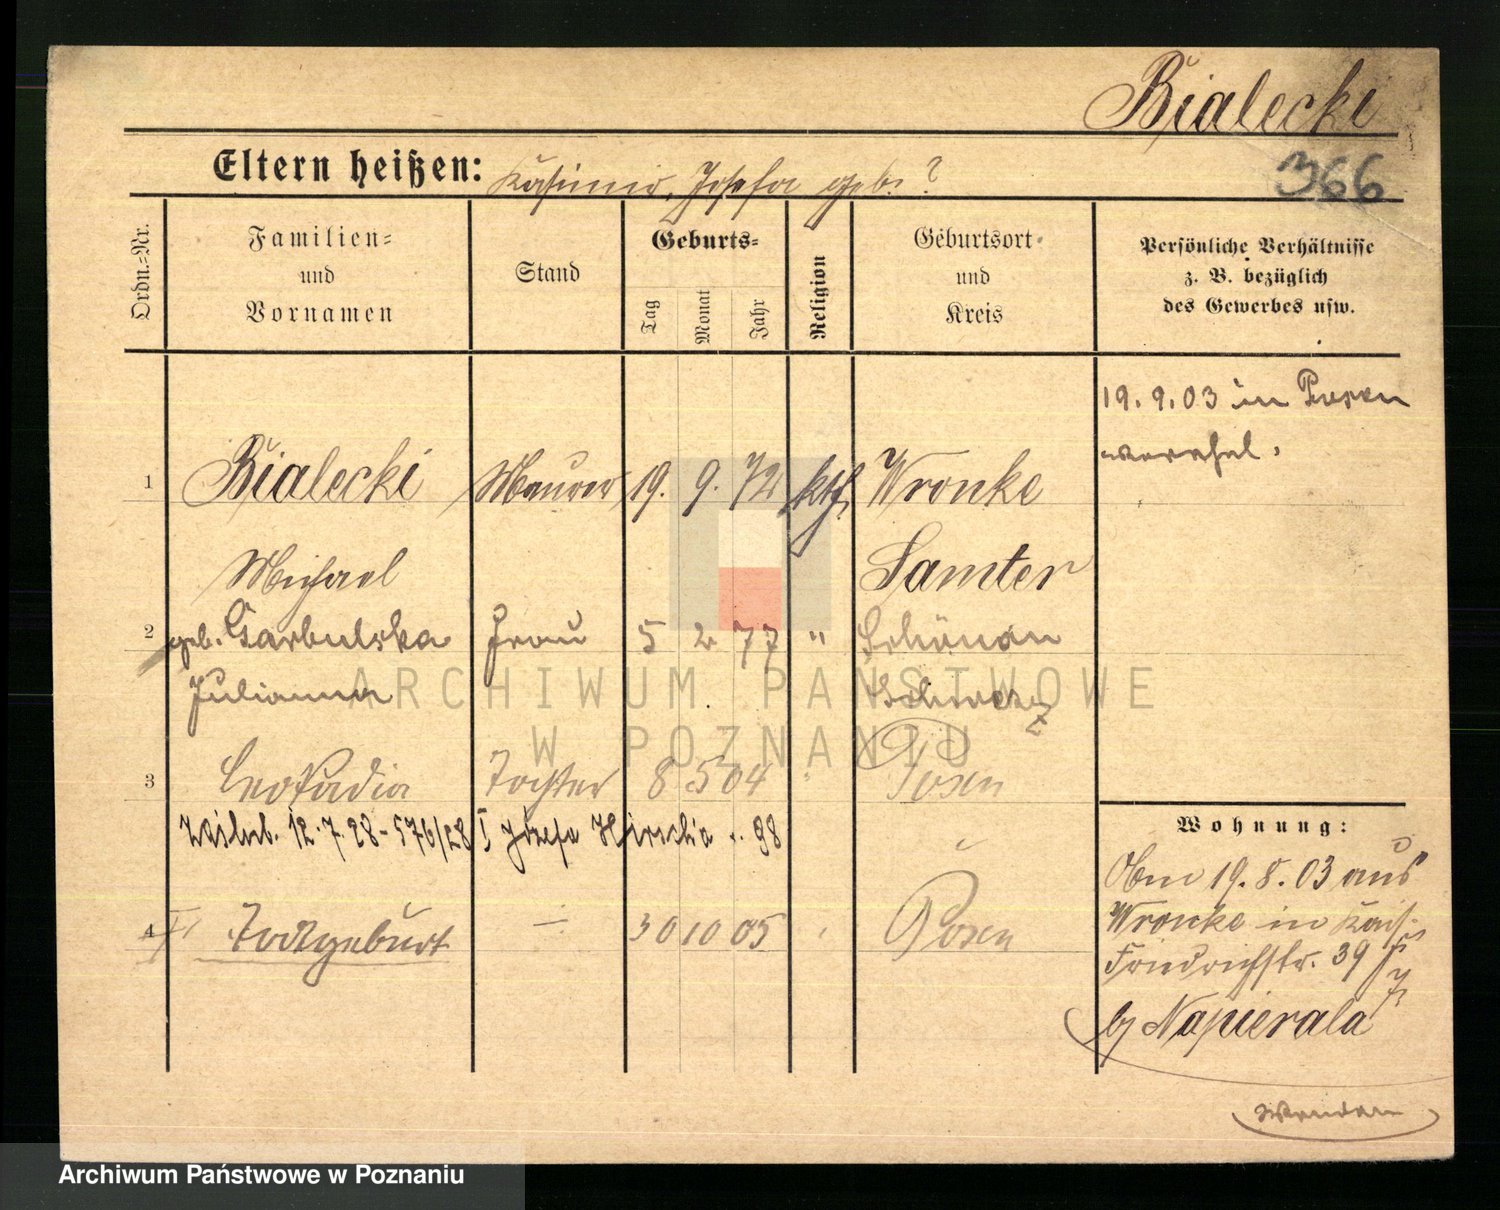 Bialecki
366
Eltern heißen: Kasimir, Josefa geb. ?
Ordn.=Nr.
Familien=
und
Vornamen
Stand
Geburts=
Tag
Monat
Jahr
Religion
Geburtsort
und
Kreis
Persönliche Verhältnisse
z. B. bezüglich
des Gewerbes usw.
19. 9. 03 in Posen
verehel.
1 Bialecki Maurer 19. 9. 72 kth. Wronke
Michael Samter
2 geb. Garbulska Frau 5 2 77 " Schönau
Julianna
3 Leokadia Tochter 8 5 04 " Posen
12.7.28-576/28 Józefa .. 98
4 Todtgeburt — 30 10 05 Posen
Wohnung:
Obm 19. 8. 03 aus
Wronke in Kais.
Friedrichstr. 39
by Napierala
Wenden
ARCHIWUM PAŃSTWOWE
W POZNANIU
Archiwum Państwowe w Poznaniu